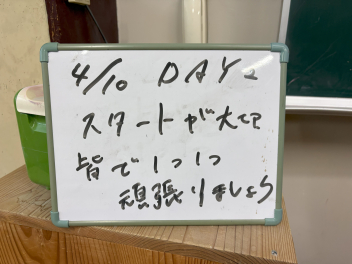 4/10 DAY2
スタートが大切
皆で1つ1つ
頑張りましょう